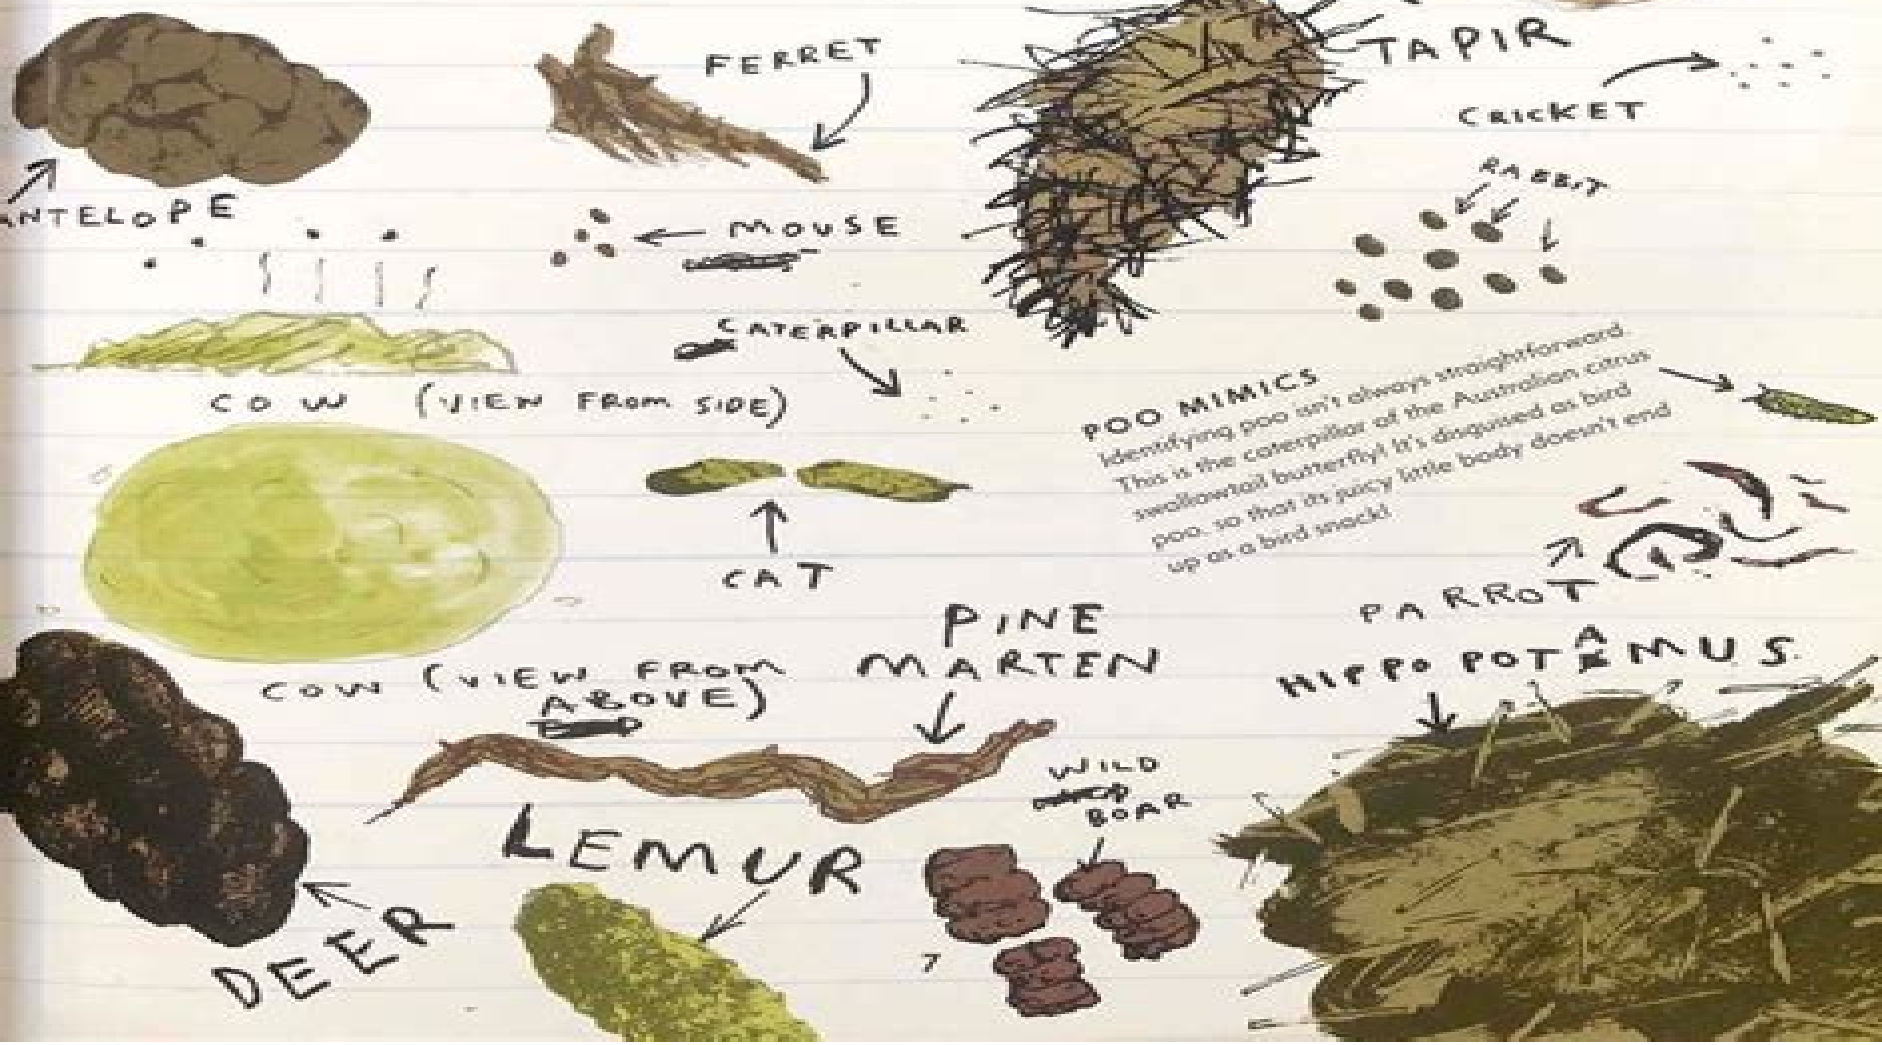 FERRET
TAPIR
CRICKET
ANTELOPE
MOUSE
RABBIT
CATERPILLAR
COW (VIEW FROM SIDE)
POO MIMICS
Identifying poo isn't always straightforward.
This is the caterpillar of the Australian citrus
swallowtail butterfly! It's disguised as bird
poo, so that its juicy little body doesn't end
up as a bird snack!
CAT
PARROT
COW (VIEW FROM
ABOVE)
PINE
MARTEN
HIPPOPOTAMUS
WILD
BOAR
LEMUR
DEER
7